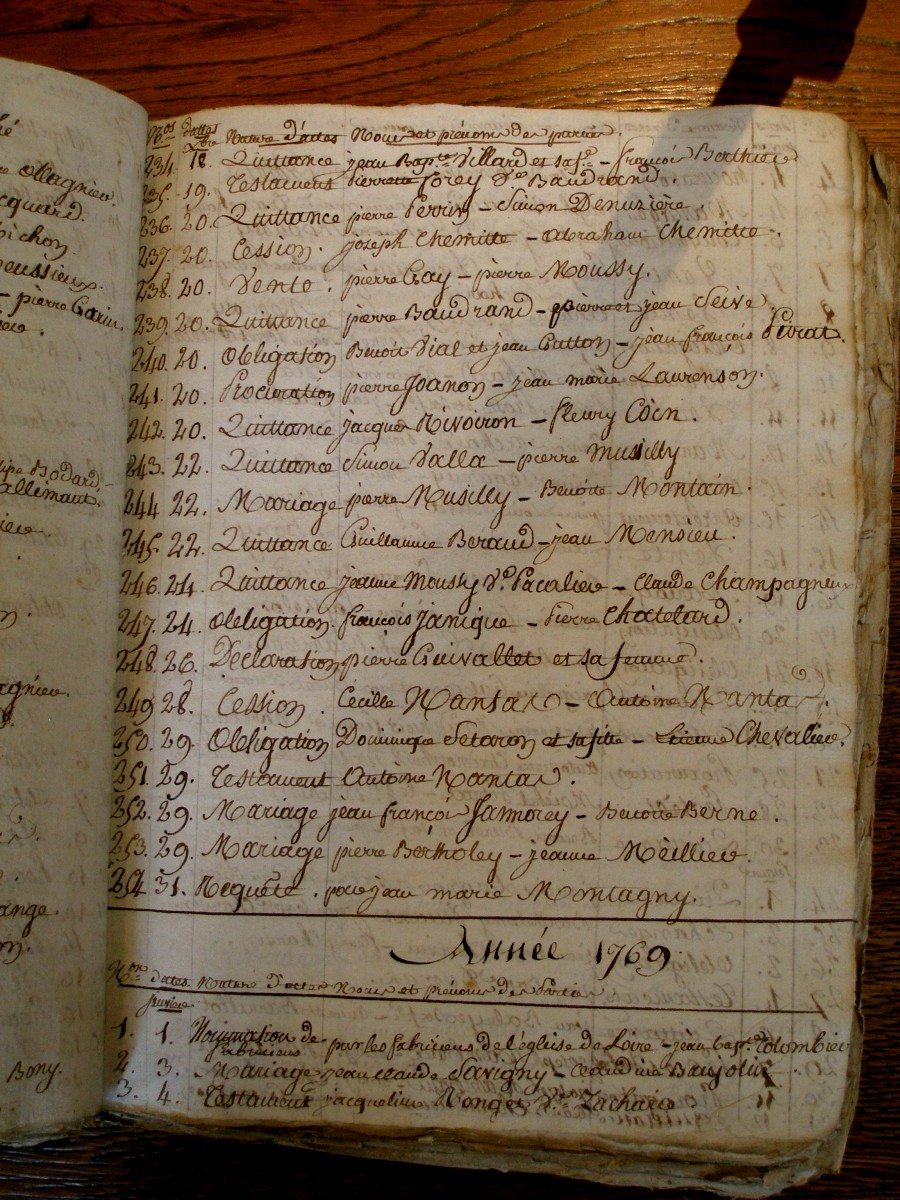 hé
ollagnier
cquard.
pichon
peussieux.
- pierre Garin.
ier.
lipe Bodard
allemant.
ier.
agnier.
ange.
Bony.
N.os dattes Nature d'actes Noms et prénoms des parties.
Xbre
234. 18. Quittance jean Bapte Villard et sa fe - françois Berthier
235. 19. Testament pierrette forey Ve Baudrand.
236. 20. Quittance pierre Perrin - Simon Denuziere.
237. 20. Cession. joseph Chemitte - abraham Chemitte.
238. 20. Vente. pierre Gay - pierre Moussy.
239. 20. Quittance pierre Baudrand - pierre et jean Seive
240. 20. Obligation Benoit Vial et jean Gutton - jean françois Peirat.
241. 20. Procuration pierre Joanon - jean marie Laurenson.
242. 20. Quittance jacques Rivoiron - fleury Coin.
243. 22. Quittance Simon Valla - pierre Musilly
244 22. Mariage pierre Musilly - Benoite Montain.
245. 22. Quittance Guillaume Beraud - jean Mensieu.
246. 24. Quittance jeanne Moussy Ve Pacaliere - Claude Champagneux
247. 24. Obligation. françois Janique - Pierre Chatelard.
248. 26. Declaration pierre Guivallet et sa femme.
249 28. Cession. Cecille Nantas - Antoine Nantas.
250. 29. Obligation Dominique Setaron et sa fille - Etienne Chevalier.
251. 29. Testament Antoine Nantas.
252. 29. Mariage jean françois Jamorey - Benoite Berne.
253. 29. Mariage pierre Bertholey - jeanne Meillier.
254 31. Requête. pour jean marie Montagny.
Année 1769.
N.os dates. Nature d'actes Noms et prénoms des Parties
janvier
1. 1. Nomination de fabriciens par les fabriciens de l'église de Loire - jean bapt. Colombier
2. 3. Mariage jean claude Savigny - Claudine Baujolin
3. 4. Testament jacqueline Ronget Ve Zacharie